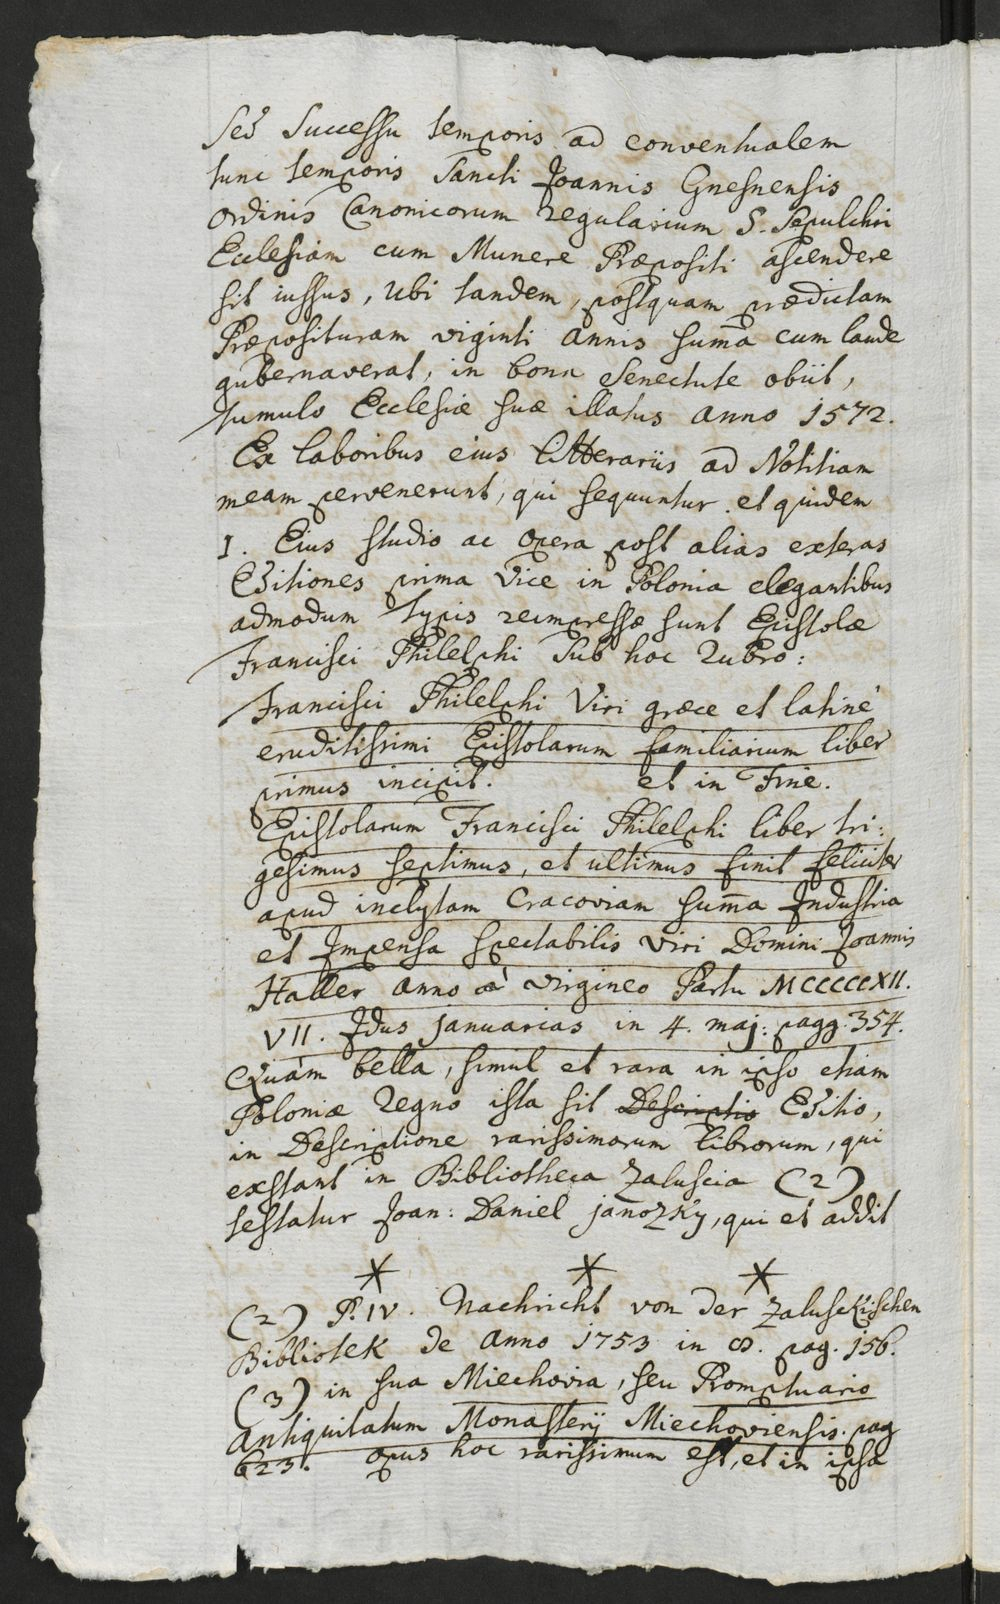 Sed Successu temporis ad conventualem
tunc temporis Sancti Joannis Gnesnensis
Ordinis Canonicorum regularium S. Sepulchri
Ecclesiam cum Munere Præpositi ascendere
sit iussus, Ubi tandem, postquam prædictam
Præposituram viginti annis sum̄a cum laude
gubernaverat, in bona Senectute obiit,
tumulo Ecclesiæ suæ illatus anno 1572.
Ex laboribus eius litterariis ad Notitiam
meam pervenerunt, qui sequuntur. et quidem
1. Eius studio ac opera post alias exteras
Editiones prima vice in Polonia elegantibus
admodum typis reimpressæ sunt Epistolæ
Francisci Philelphi sub hoc Rubro:
Francisci Philelphi Viri græce et latinè
eruditissimi Epistolarum familiarium liber
primus incipit. et in Fine.
Epistolarum Francisci Philelphi liber tri:
gesimus septimus, et ultimus finit feliciter
apud inclytam Cracoviam sum̄a Industria
et Impensa spectabilis viri Domini Joannis
Haller anno à virgineo Partu MCCCCCXII.
VII. Idus januarias in 4. maj: pagg. 354.
Quàm bella, simul et rara in ipso etiam
Poloniæ Regno ista sit Descriptio Editio,
in Descriptione rarissimorum librorum, qui
exstant in Bibliotheca Zaluscia (2)
testatur Joan: Daniel janozky, qui et addit
* * *
(2) P. IV. Nachricht von der Zaluskischen
Bibliotek de anno 1753 in 8. pag. 156.
(3) in sua Miechovia, seu Promptuario
Antiquitatum Monasterij Miechoviensis. pag
623. opus hoc rarissimum est, et in ipsa